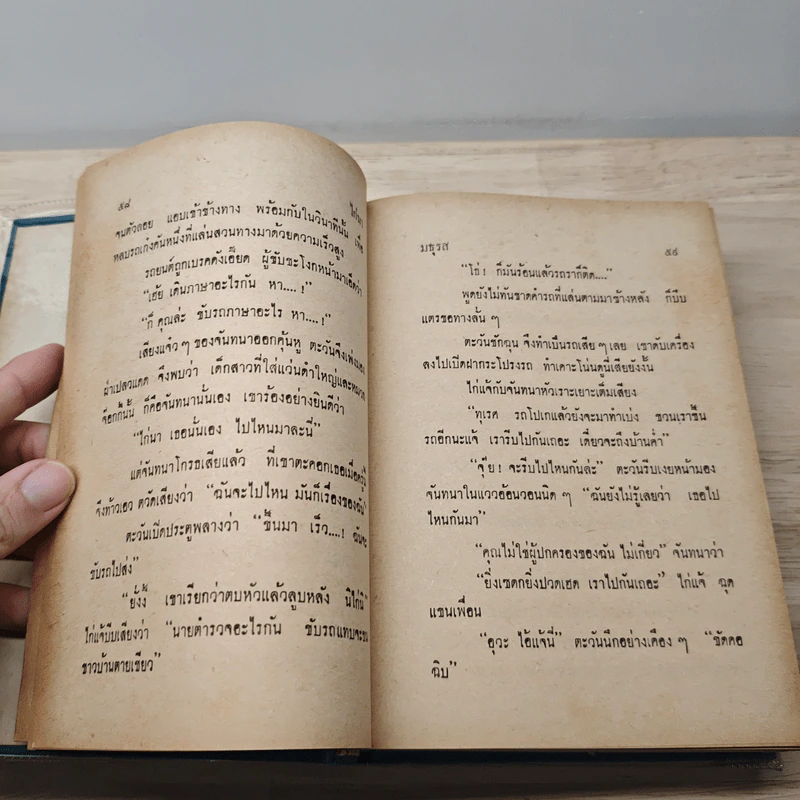 ๕๘ ไก่นา
จนตัวลอย แอบเข้าข้างทาง พร้อมกับในวินาทีนั้น เพื่อ
หลบรถเก๋งคันหนึ่งที่แล่นสวนทางมาด้วยความเร็วสูง
รถยนต์ถูกเบรคดังเอี๊ยด ผู้ขับชะโงกหน้ามาเอ็ดว่า
“เฮ้ย เดินภาษาอะไรกัน หา....!”
“ก็ คุณล่ะ ขับรถภาษาอะไร หา....!”
เสียงแจ๋วๆ ของจันทนาออกคุ้นหู ตะวันจึงเพ่งมอง
ฝ่าเปลวแดด จึงพบว่า เด็กสาวที่ใส่แว่นดำใหญ่และหมวก
จ๊อกกี้นั้น ก็คือจันทนานั้นเอง เขาร้องอย่างยินดีว่า
“ไก่นา เธอนั้นเอง ไปไหนมาล่ะนี่”
แต่จันทนาโกรธเสียแล้ว ที่เขาตะคอกเธอเมื่อครู่นี้
จึงท้าวเอว ตวัดเสียงว่า “ฉันจะไปไหน มันก็เรื่องของฉัน”
ตะวันเปิดประตูพลางว่า “ขึ้นมา เร็ว....! ฉันจะ
ขับรถไปส่ง”
“ยังงี้ เขาเรียกว่าตบหัวแล้วลูบหลัง นิไก่นิ”
ไก่แจ้บีบเสียงว่า “นายตำรวจอะไรกัน ขับรถแทบจะชน
ชาวบ้านตายเชียว”
มธุรส ๕๙
“โธ่! ก็มันร้อนแล้วรถราก็ติด....”
พูดยังไม่ทันขาดคำรถที่แล่นตามมาข้างหลัง ก็บีบ
แตรขอทางลั่น ๆ
ตะวันชักฉุน จึงทำเป็นรถเสีย ๆ เลย เขาดับเครื่อง
ลงไปเปิดฝากระโปรงรถ ทำเคาะโน่นดูนี่เสียยังงั้น
ไก่แจ้กับจันทนาหัวเราะเยาะเต็มเสียง
“ทุเรศ รถโปเกแล้วยังจะมาทำเบ่ง ชวนเราขึ้น
รถอีกนะแจ้ เรารีบไปกันเถอะ เดี๋ยวจะถึงบ้านค่ำ”
“จุ๊ย! จะรีบไปไหนกันล่ะ” ตะวันรีบเงยหน้ามอง
จันทนาในแววอ้อนวอนนิด ๆ “ฉันยังไม่รู้เลยว่า เธอไป
ไหนกันมา”
“คุณไม่ใช่ผู้ปกครองของฉัน ไม่เกี่ยว” จันทนาว่า
“ยิ่งเซดกยิ่งปวดเฮด เราไปกันเถอะ” ไก่แจ้ ฉุด
แขนเพื่อน
“อุวะ ไอ้แจ้นี่” ตะวันนึกอย่างเคือง ๆ “ขัดคอ
ฉิบ”